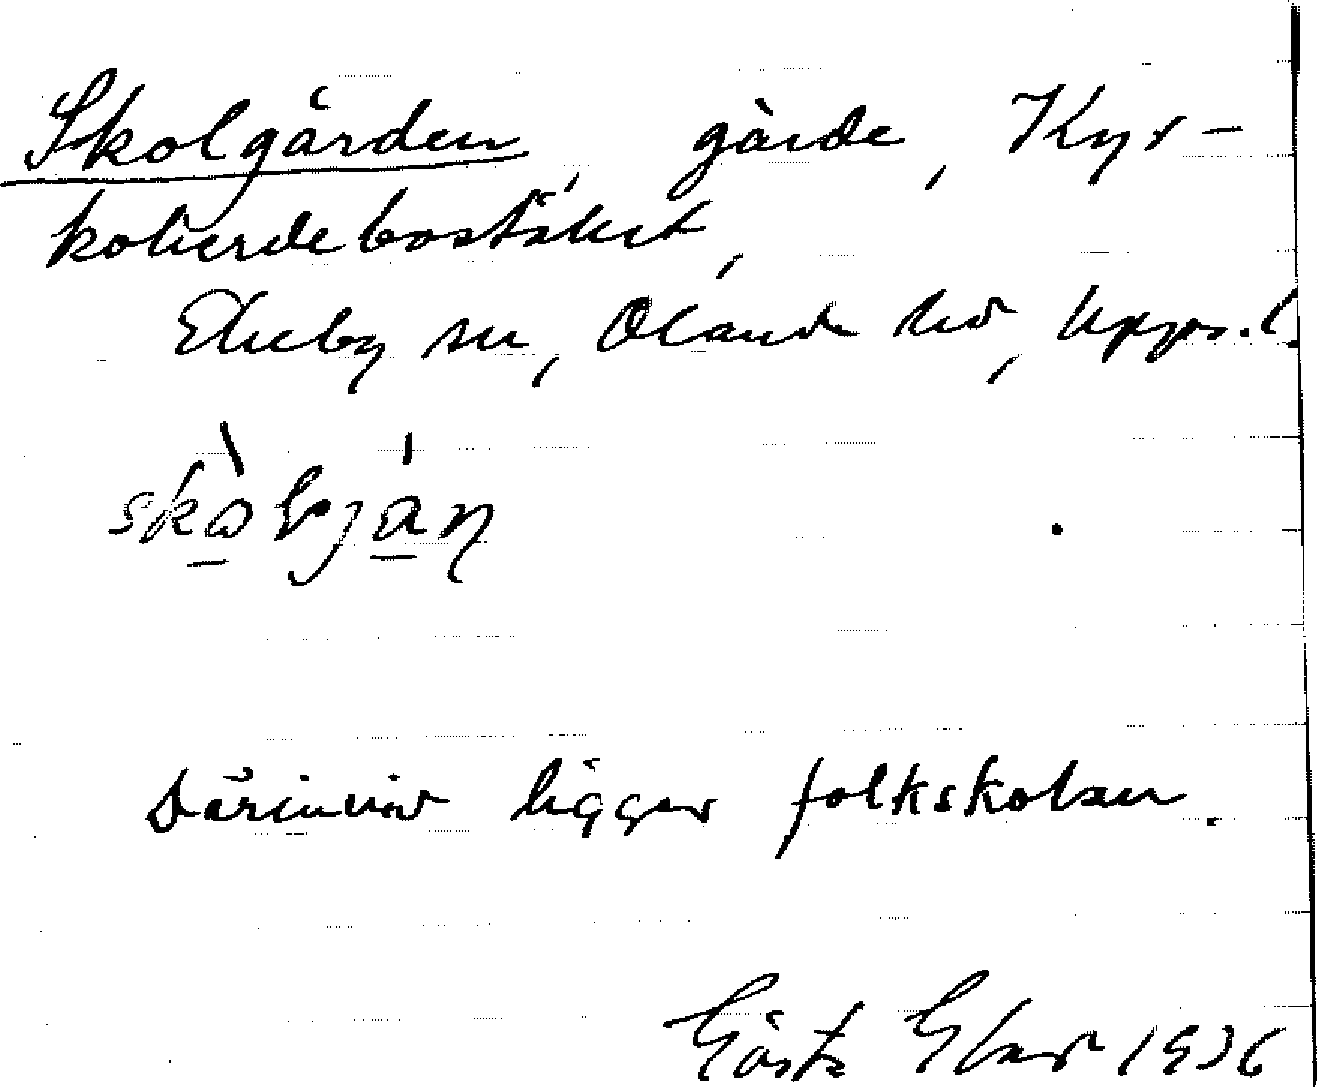 Skolgärden, gärde, Kyr-
koherdebostället,
Ekeby sn, Oland hd, Upps. l.
Därinvid ligger folkskolan.
Gösta 1936